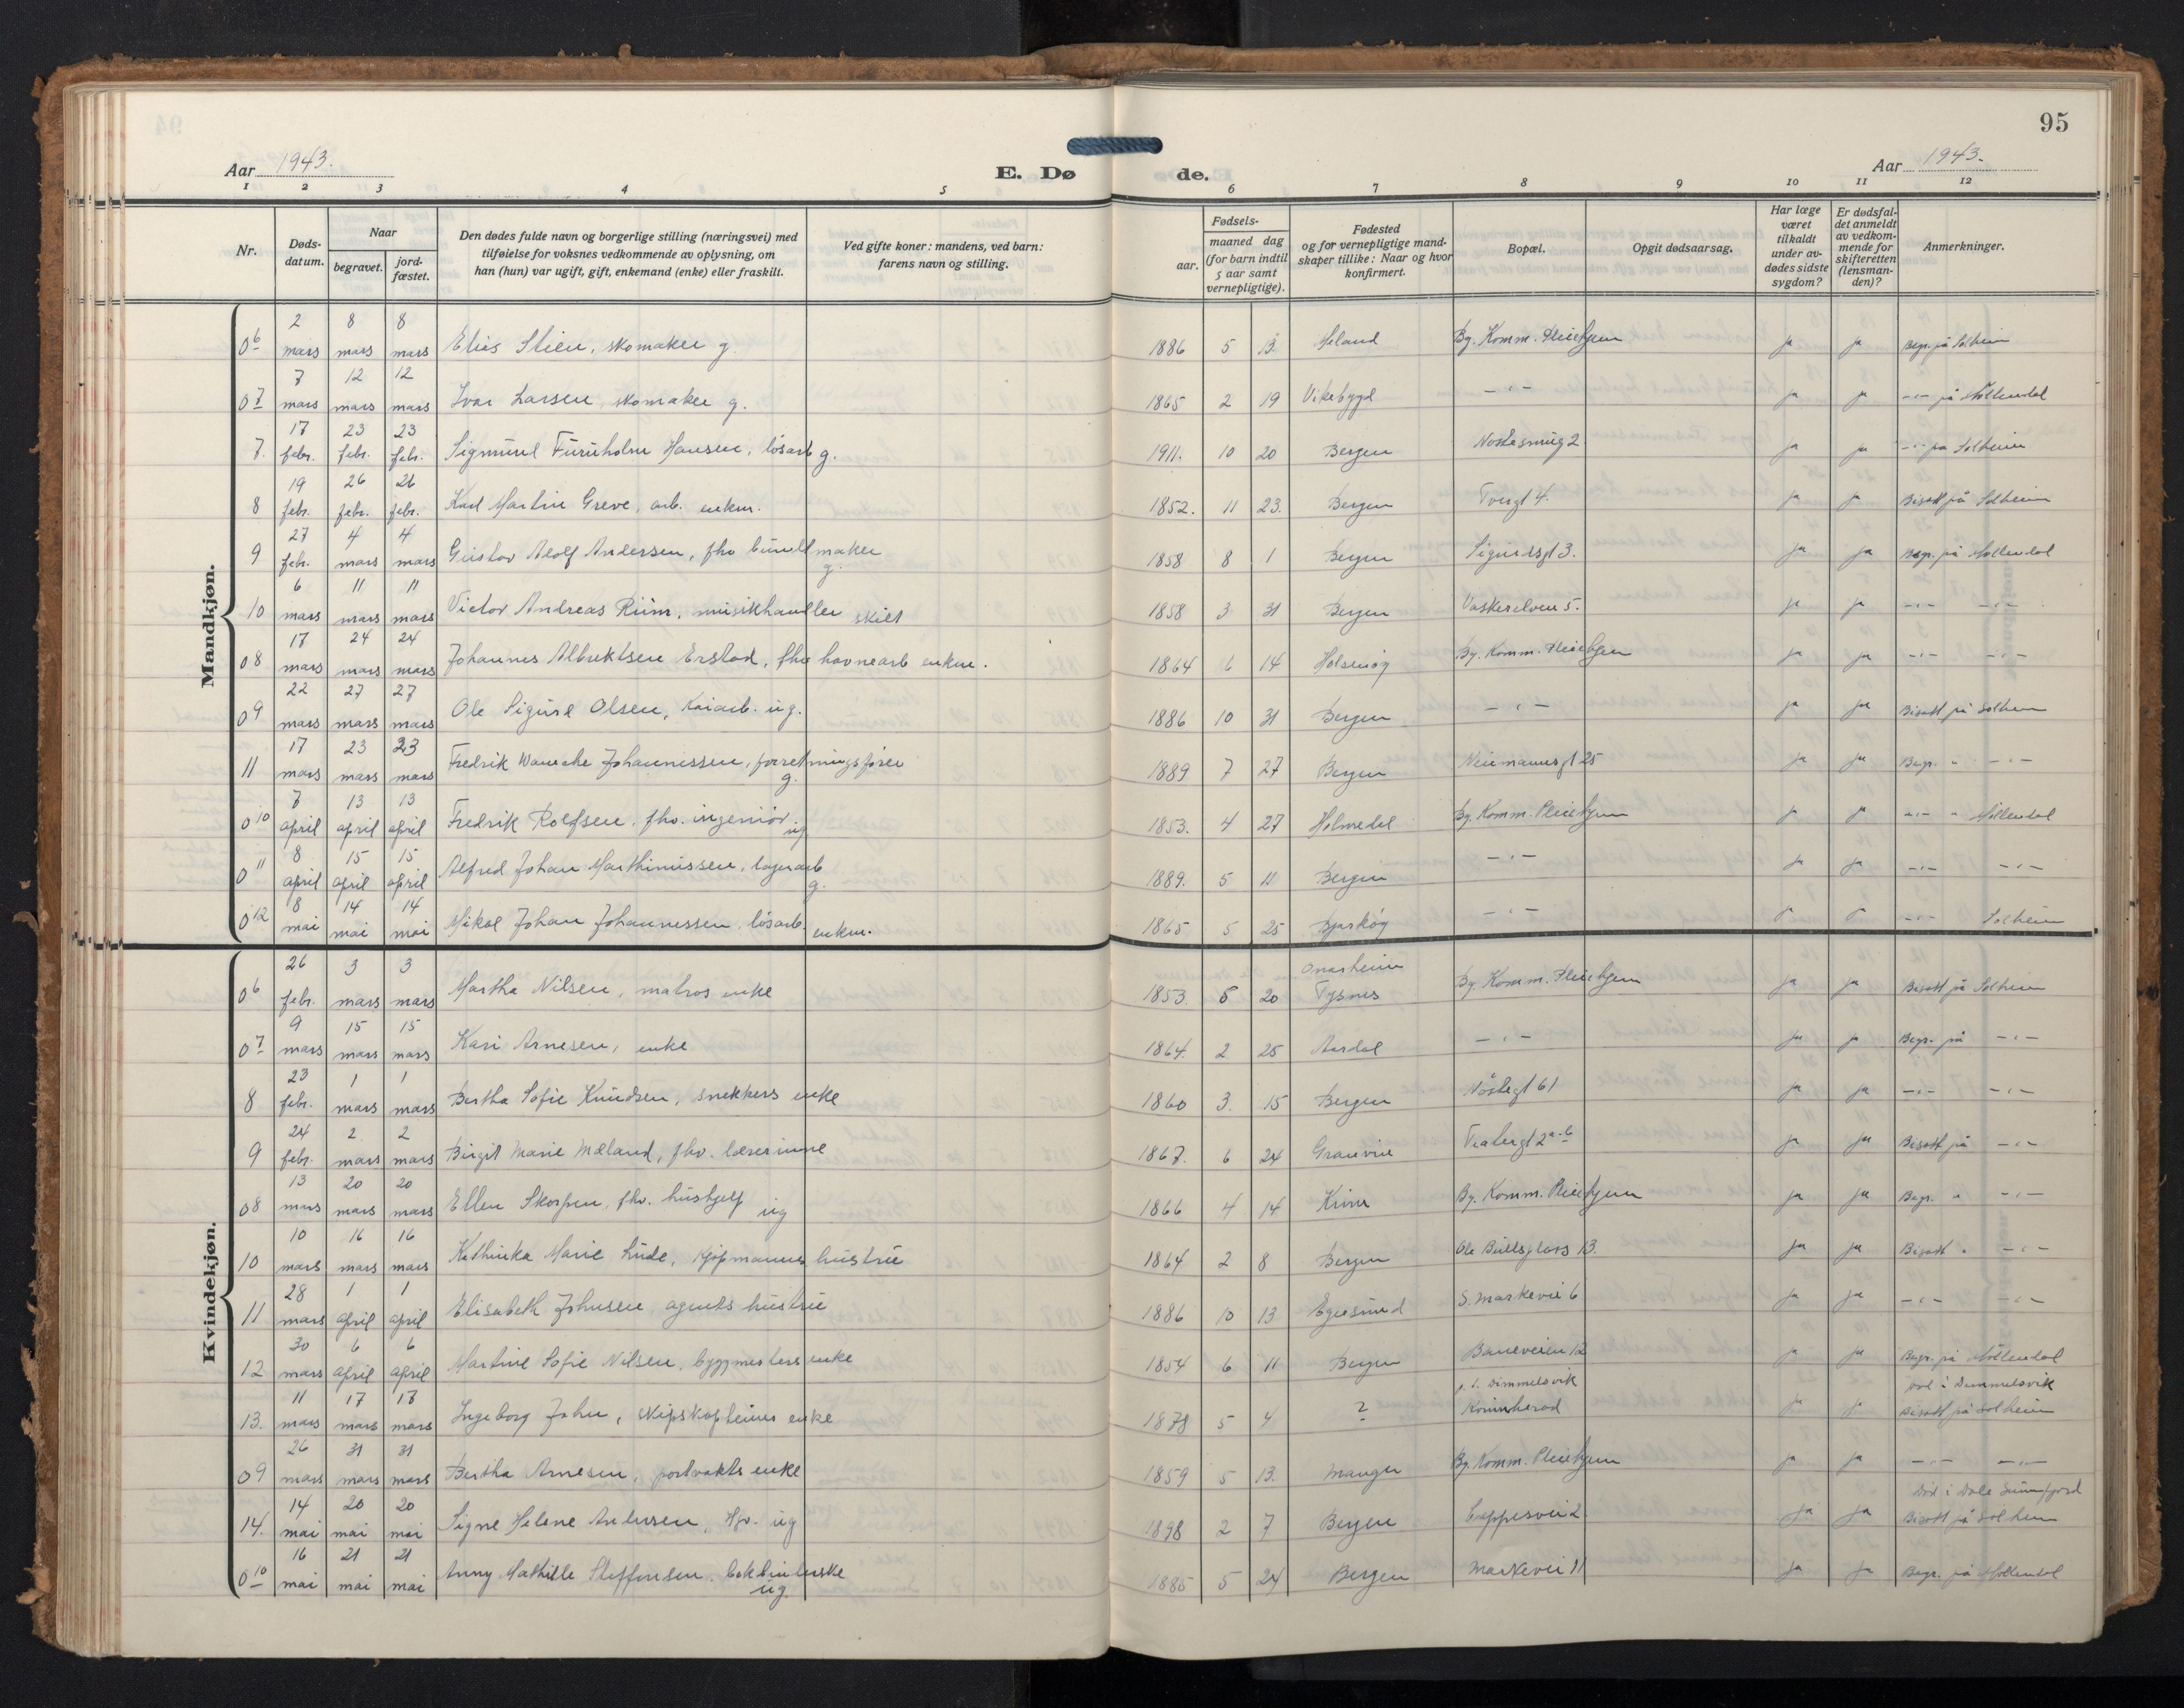 94
95
Aar 1943.
E. Dø
de.
Aar 1943.
1 2 3 4 5 6 7 8 9 10 11 12
Nr.
Døds-
datum.
Naar
begravet.
jord-
fæstet.
Den dødes fulde navn og borgerlige stilling (næringsvei) med
tilføielse for voksnes vedkommende av oplysning, om
han (hun) var ugift, gift, enkemand (enke) eller fraskilt.
Ved gifte koner: mandens, ved barn:
farens navn og stilling.
Fødsels-
aar.
maaned dag
(for barn indtil
5 aar samt
vernepligtige).
Fødested
og for vernepligtige mand-
skaper tillike: Naar og hvor
konfirmert.
Bopæl.
Opgit dødsaarsag.
Har læge
været
tilkaldt
under av-
dødes sidste
sygdom?
Er dødsfal-
det anmeldt
av vedkom-
mende for
skifteretten
(lensman-
den)?
Anmerkninger.
Mandkjøn.
06 2 mars 8 mars 8 mars Elias Stien, skomaker g. 1886 5 13. Meland By. Komm. Pleiehjem ja ja Begr. på Solheim
07 7 mars 12 mars 12 mars Ivar Larsen, skomaker g. 1865 2 19 Vikebygd -"- ja ja -"- på Møllendal
7. 17 febr. 23 febr. 23 febr. Sigmund Furuholm Hansen, løsarb g. 1911. 10 20 Bergen Nostesmug 2 ja ja -"- på Solheim
8 19 febr. 26 febr. 26 febr. Karl Martin Greve, arb. enkm. 1852. 11 23. Bergen Tvergt 4. ja ja Bisatt på Solheim
9 27 febr. 4 mars 4 mars Gustav Adolf Andersen, fhv buntmaker g. 1858 8 1 Bergen Sigurdsgt 3. ja ja Begr. på Møllendal
10 6 mars 11 mars 11 mars Victor Andreas Riim, musikhandler skilt 1858 3 31 Bergen Vaskerelven 5. ja ja -"- -"-
08 17 mars 24 mars 24 mars Johannes Albrektsen Erstad, fhv havnearb enkm. 1864 6 14 Holsenøy By. Komm. Pleiehjem ja ja -"- -"-
09 22 mars 27 mars 27 mars Ole Sigurd Olsen, kaiarb. ug. 1886 10 31 Bergen -"- ja ja Bisatt på Solheim
11 17 mars 23 mars 23 mars Fredrik Johannessen, forretningsfører g. 1889 7 27 Bergen Neumannsgt 25 ja ja Begr. " -"-
010 7 april 13 april 13 april Fredrik Rolfsen, fhv. ingeniør ug 1853. 4 27 Holmedal By. Komm. Pleiehjem ja ja -"- " Møllendal
011 8 april 15 april 15 april Alfred Johan Marthinussen, lagerarb g. 1889. 5 11 Bergen -"- ja ja -"- -"-
012 8 mai 14 mai 14 mai Mikal Johan Johannessen, løsarb. enkm. 1865 5 25 Bjarkøy -"- ja ja -"- Solheim
Kvindekjøn.
06 26 febr. 3 mars 3 mars Martha Nilsen, matros enke 1853. 5 20 Onarheim Tysnes By. Komm. Pleiehjem ja ja Bisatt på Solheim
07 9 mars 15 mars 15 mars Kari Arnesen, enke 1864. 2 25 Aardal -"- ja ja Begr. på -"-
8 23 febr. 1 mars 1 mars Bertha Sofie Knudsen, snekkers enke 1860 3. 15 Bergen Nøstegt 61 ja ja -"- -"-
9 24 febr. 2 mars 2 mars Birgit Marie Mæland, fhv. lærerinne 1867. 6 24 Granvin Teatergt 2 a-b ja ja Bisatt på -"-
08 13 mars 20 mars 20 mars Ellen Skorpen, fhv. hushjelp ug 1866 4 14 Kinn By. Komm. Pleiehjem ja ja Begr. " -"-
10 10 mars 16 mars 16 mars Kathinka Marie Lude, kjøpmanns hustru 1864 2 8 Bergen Ole Bullsplass 13. ja ja Bisatt " -"-
11 28 mars 1 april 1 april Elisabeth Johnsen, agents hustru 1886 10 13 Egersund S. Markevei 6 ja ja -"- -"-
12 30 mars 6 april 6 april Martine Sofie Nilsen, byggmesters enke 1854 6 11 Bergen Baneveien 12 ja ja Begr. på Møllendal
13. 11 mars 17 mars 17 mars Ingeborg John, skipskapteins enke 1878 5 4 ? p. t. Dimmelsvik Kvinnherad ja ja Død i Dimmelsvik Bisatt på Solheim
09 26 mars 31 mars 31 mars Bertha Arnesen, portvakts enke 1859 5 13. Manger By. Komm. Pleiehjem ja ja -"- -"-
14. 14 mai 20 mai 20 mai Signe Helene Andersen, Hjv. ug 1898 2 7 Bergen Cappesvei 2 ja ja Død i Dale Sunnfjord Bisatt på Solheim
010 16 mai 21 mai 21 mai Anny Mathilde Steffensen, bokbinderske ug. 1885 5 24 Bergen Markevei 11 ja ja Begr. på Møllendal